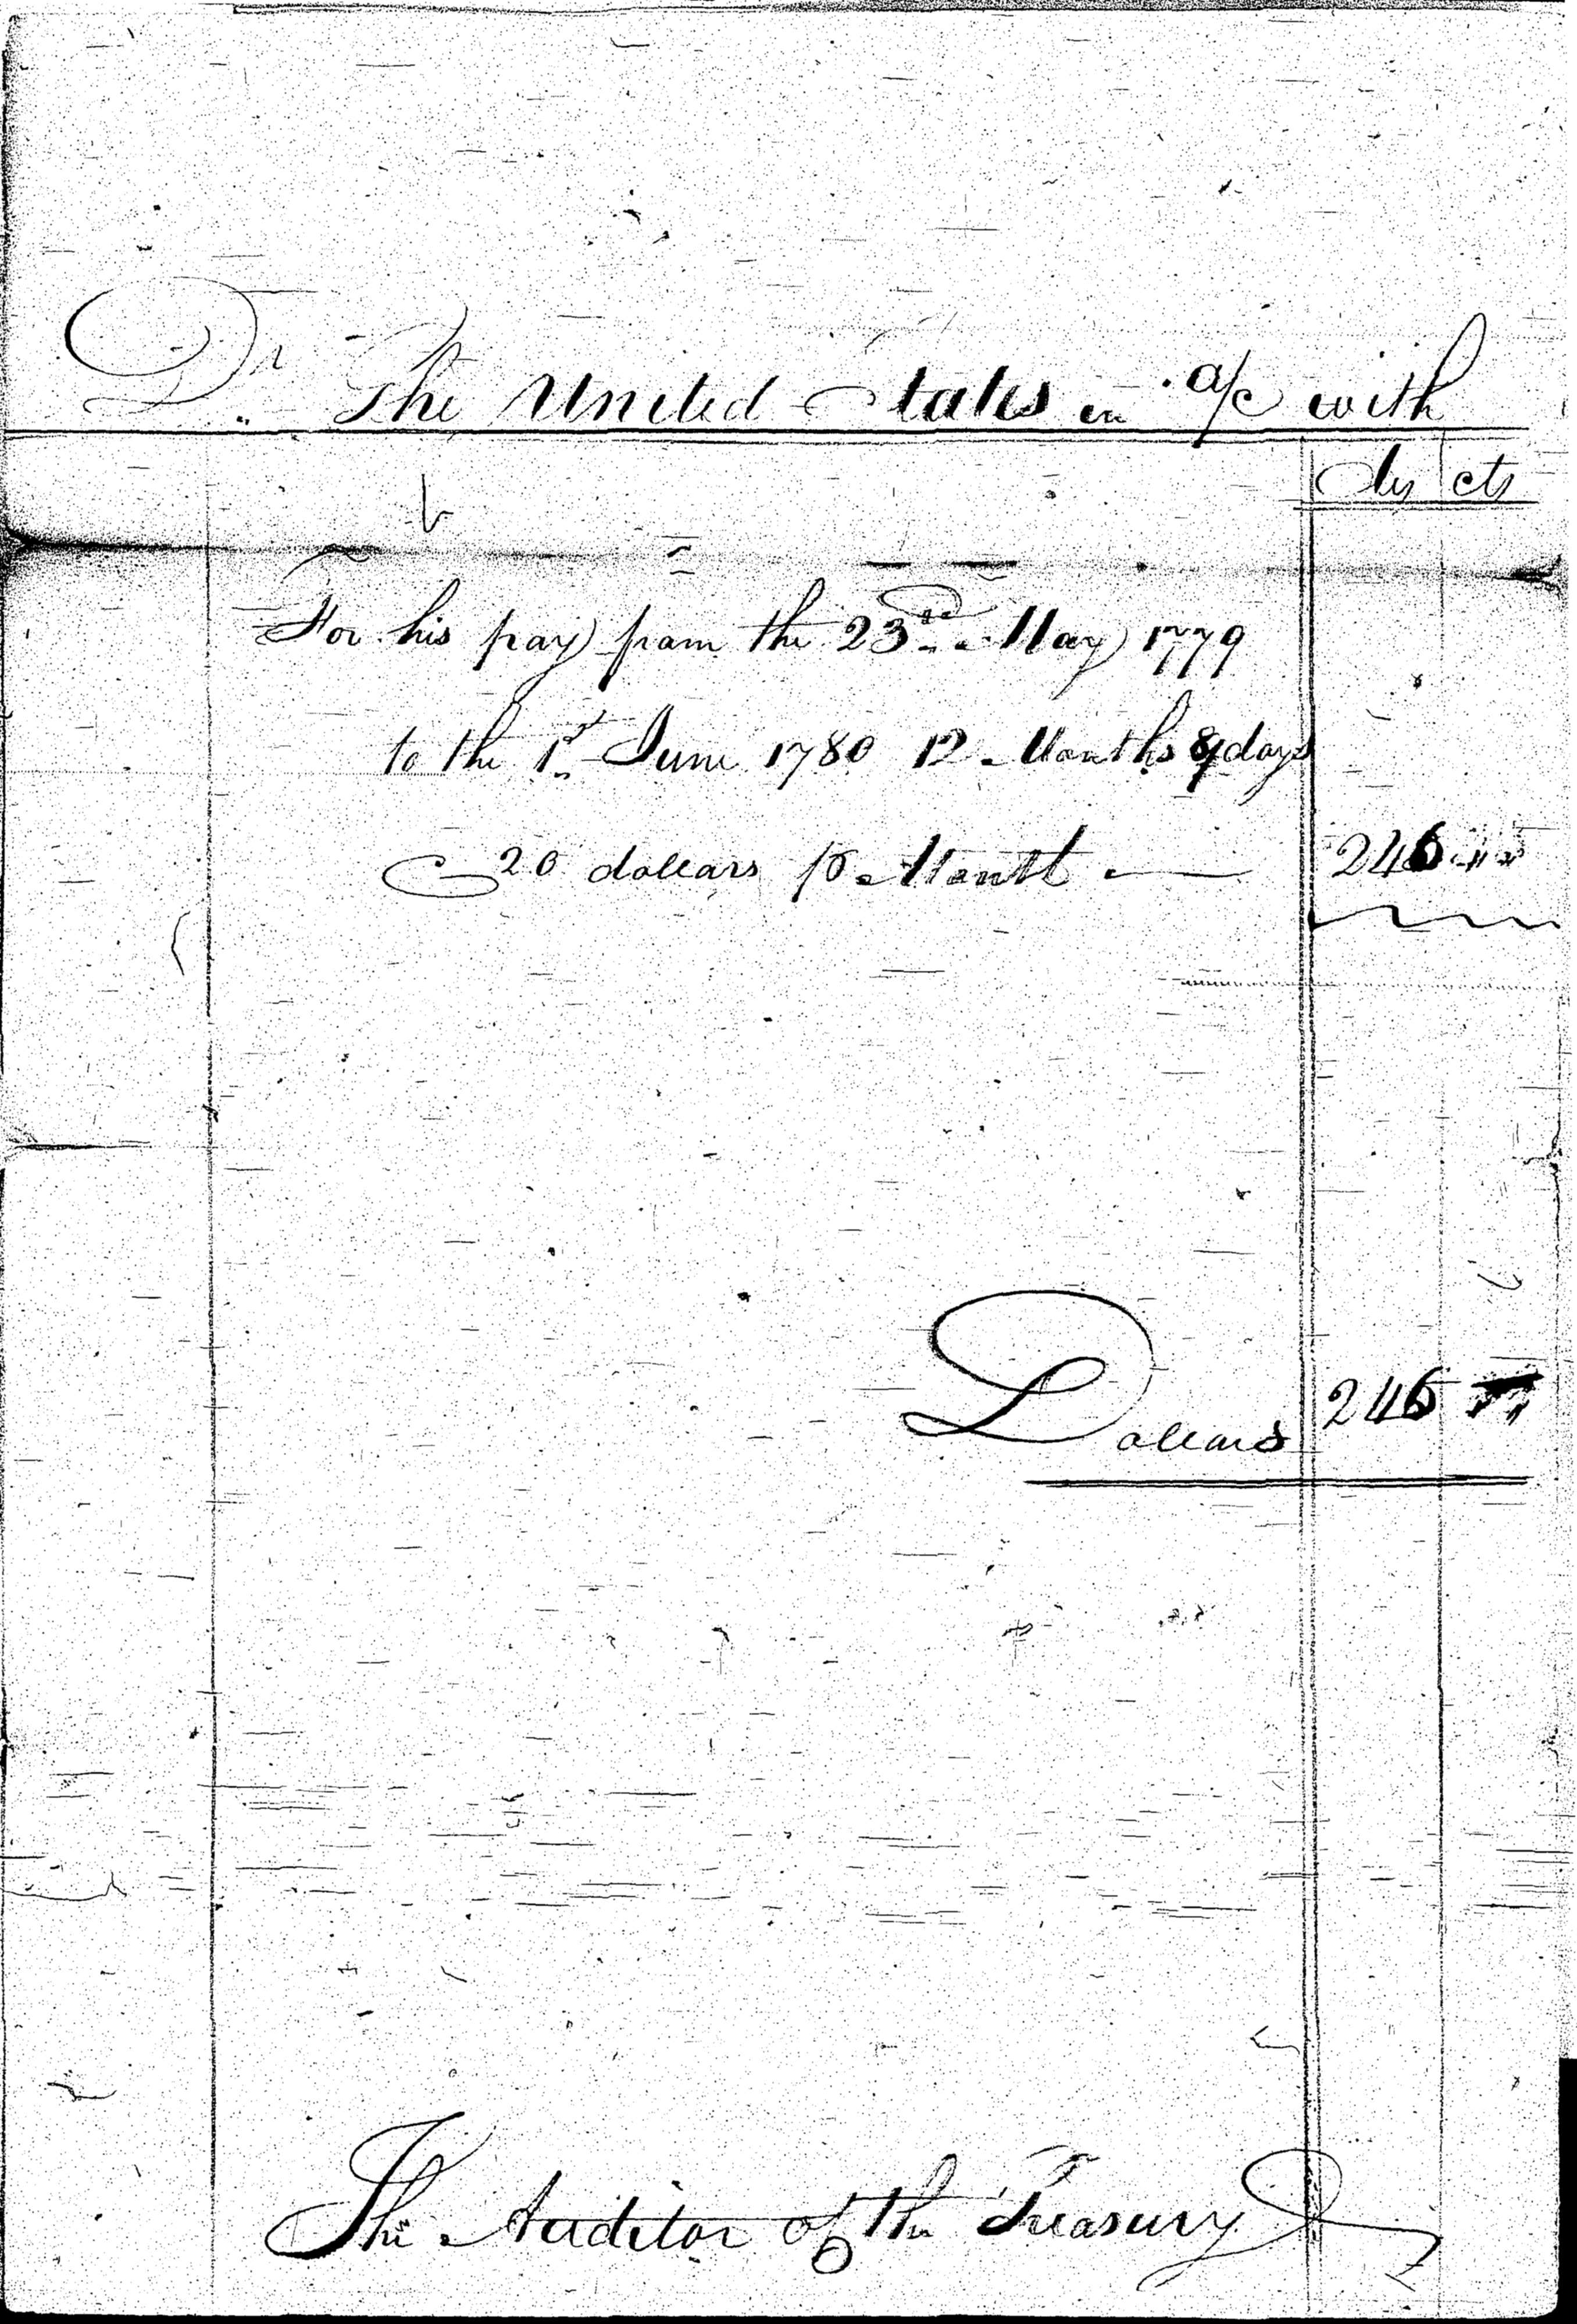 Dr. The United States in a/c with
dls cts
For his pay from the 23rd May 1779
to the 1st June 1780 12 Months 9 days
20 dollars p Month 246 " "
Dollars 246 " "
The Auditor of the Treasury